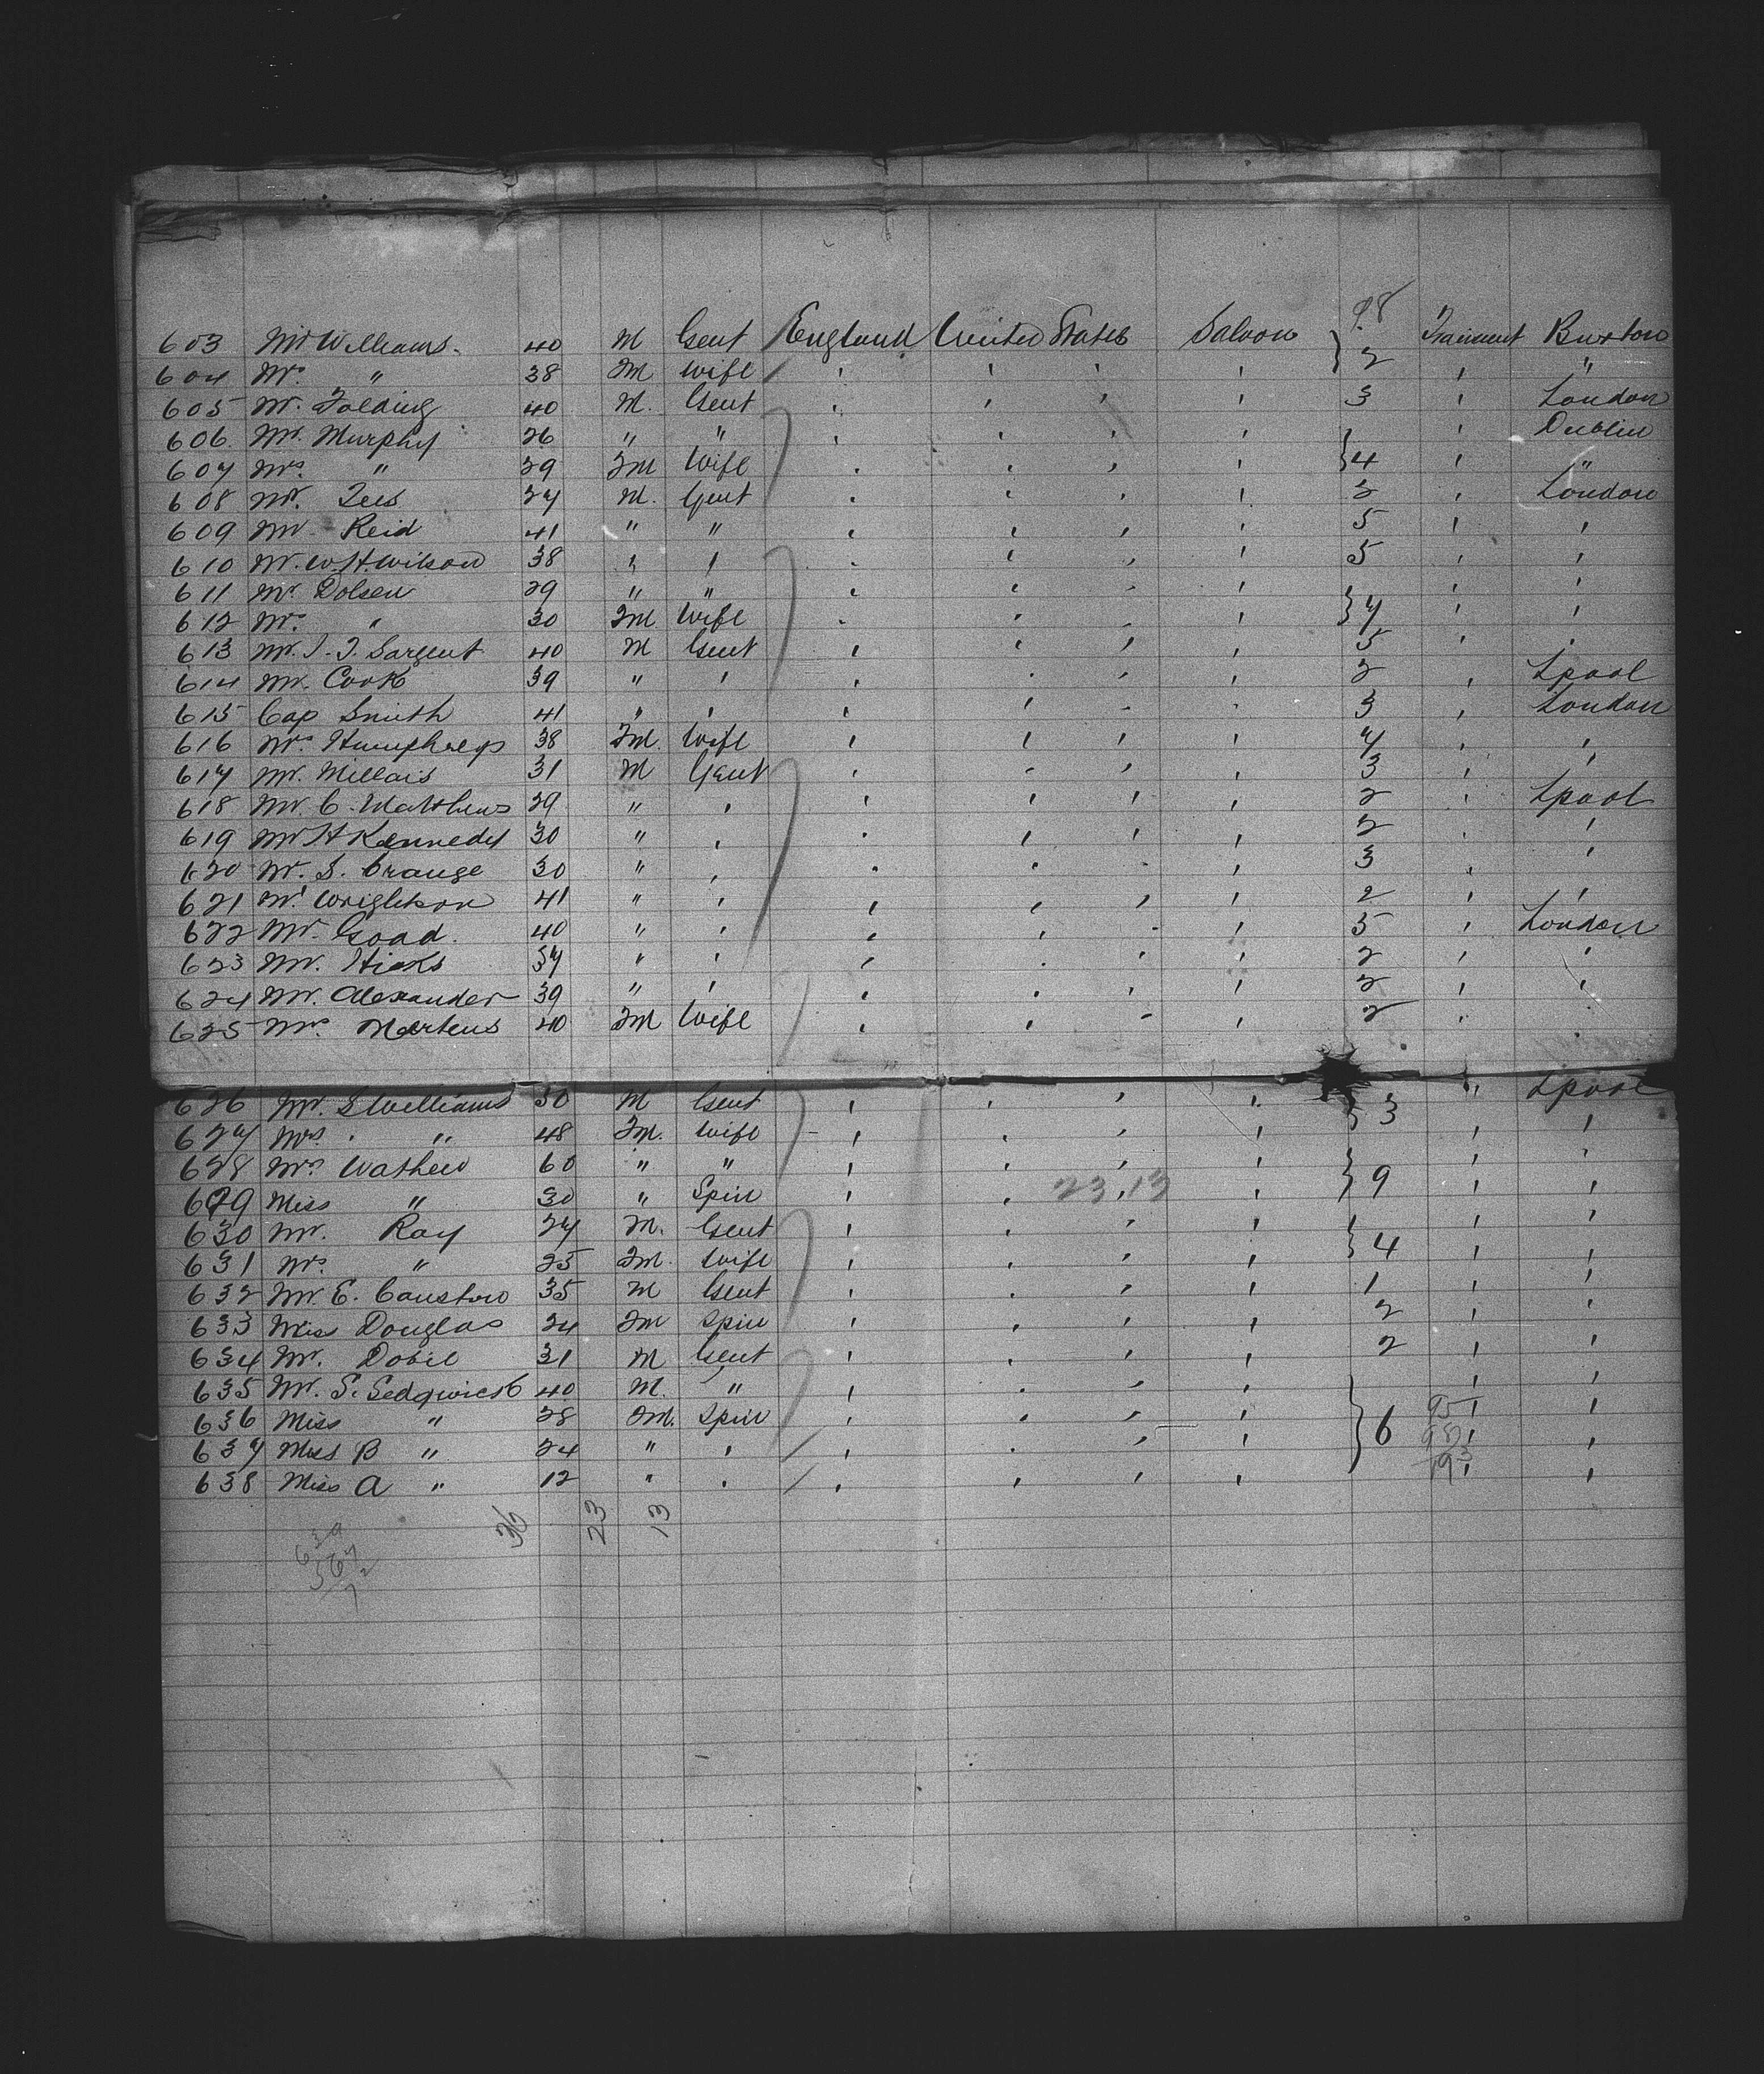 98
603 Mr Williams. 40 M Gent England United States Saloon } 2 Transient Buxton
604 Mrs " 38 Fm Wife ' ' ' ' ' "
605 Mr. Folding 40 M. Gent ' ' ' ' 3 ' London
606. Mr. Murphy 26 " " ' ' ' ' ' Dublin
607 Mrs " 29 Fm Wife ' ' ' ' } 4 ' "
608 Mr. Tees 27 M. Gent ' ' ' ' 2 ' London
609 Mr Reid 41 " " ' ' ' ' 5 ' '
610 Mr. W. H. Wilson 38 " ' ' ' ' ' 5 ' '
611 Mr Dolsen 29 " " ' ' ' ' ' '
612 Mrs " 30 Fm Wife ' ' ' } 7 ' '
613 Mr. J. T. Sargent 40 M Gent ' ' ' ' 5 ' '
614 Mr. Cook 39 " ' ' ' ' ' 2 ' Lpool
615 Cap Smith 41 " ' ' ' ' ' 3 ' London
616 Mrs Humphreys 38 Fm. Wife ' ' ' ' 7 ' '
617 Mr. Millais 31 M Gent ' ' ' ' 3 ' '
618 Mr. C. Matthews 29 " ' ' ' ' ' 2 ' Lpool
619 Mr H Kennedy 30 " ' ' ' ' ' 2 ' '
620 Mr. S. Orange 30 " ' ' ' ' 3 ' '
621 Mr Wrightson 41 " ' ' ' ' ' 2 ' '
622 Mr. Goad. 40 " ' ' ' ' ' 5 ' London
623 Mr. Hicks 37 " ' ' ' ' ' 2 ' '
624 Mr. Alexander 39 " ' ' ' ' ' 2 ' '
625 Mrs Martens 40 Fm Wife ' ' ' ' 2 '
626 Mr. S Williams 50 M Gent ' ' ' ' " Lpool
627 Mrs " 48 Fm. Wife ' ' ' ' } 3 ' '
628 Mrs Wathew 60 " " ' ' ' ' ' '
629 Miss " 30 " Spin ' ' 23,13 ' } 9 ' '
630 Mr. Ray 27 M. Gent ' ' ' ' ' '
631 Mrs " 25 Fm. Wife ' ' ' ' } 4 ' '
632 Mr. E. Causton 35 M Gent ' ' ' ' 1 ' '
633 Miss Douglas 24 Fm Spin ' ' ' ' 2 ' '
634 Mr. Dobie 31 M Gent ' ' ' ' 2 ' '
635 Mr. S. Sedgwick 40 M. " ' ' ' ' ' '
636 Miss " 28 Fm. Spin ' ' ' ' } 6 95 ' '
637 Miss B " 24 " ' ' ' ' ' 98 ' '
638 Miss A " 12 " ' ' ' ' ' 193 ' '
36 23 13
639
567
72